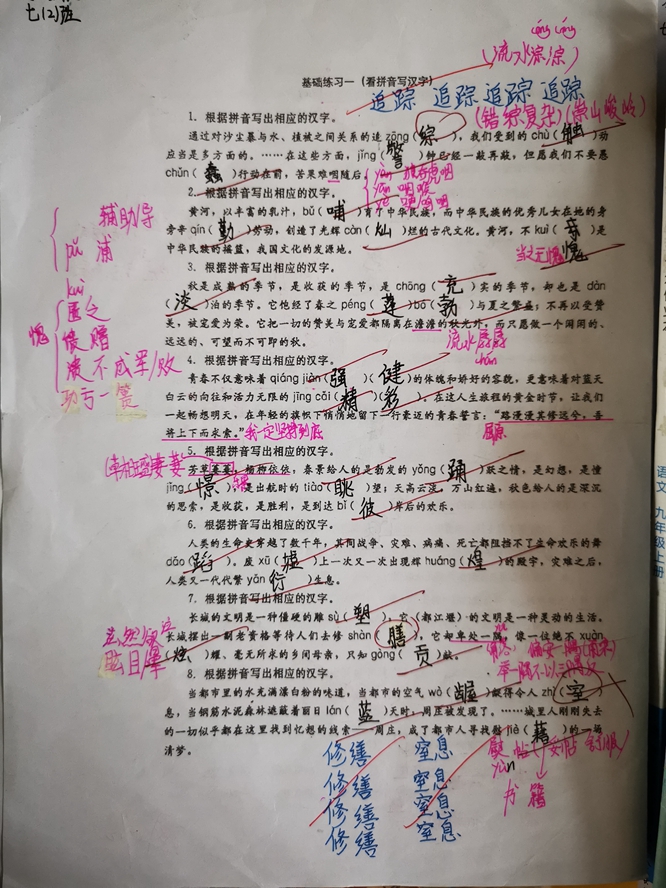 七(2)班
cóng cóng
(流水淙淙)
基础练习一(看拼音写汉字)
追踪 追踪 追踪 追踪
(错综复杂)(崇山峻岭)
1. 根据拼音写出相应的汉字。
通过对沙尘暴与水、植被之间关系的追zōng(综),我们受到的chù(触)动
应当是多方面的。……在这些方面,jǐng(警)钟已经一敲再敲,但愿我们不要愚
chǔn(蠢)行动在前,苦果难咽随后。
2. 根据拼音写出相应的汉字。
黄河,以丰富的乳汁,bǔ(哺)育了中华民族,而中华民族的优秀儿女在她的身
旁辛qín(勤)劳动,创造了光辉càn(灿)烂的古代文化。黄河,不kuì(愧)是
中华民族的摇篮,我国文化的发源地。
辅助导
pǔ 浦
当之无愧
3. 根据拼音写出相应的汉字。
秋是成熟的季节,是收获的季节,是chōng(充)实的季节,却也是dàn
(淡)泊的季节。它饱经了春之péng(蓬)bó(勃)与夏之繁盛;不再以受赞
美、被宠爱为荣。它把一切的赞美与宠爱都隔离在澹澹的秋光外,而只愿做一个闲闲的、
远远的、可望而不可即的秋。
kuì
愧
匮乏
馈赠
溃不成军/败
功亏一篑
流水潺潺
chán
4. 根据拼音写出相应的汉字。
青春不仅意味着qiáng jiàn(强)(健)的体魄和娇好的容貌,更意味着对蓝天
白云的向往和活力无限的jīng cǎi(精)(彩)。在这人生旅程的黄金时节,让我们
一起畅想明天,在年轻的旗帜下悄悄地留下一行豪迈的青春誓言:“路漫漫其修远兮,吾
将上下而求索。”我一定坚持到底
屈原
5. 根据拼音写出相应的汉字。
芳草萋萋,植物依依,春景给人的是勃发的yǒng(踊)跃之情,是幻想,是憧
jǐng(憬),是出航时的tiào(眺)望;天高云淡,万山红遍,秋色给人的是深沉
的思索,是收获,是胜利,是到达bǐ(彼)岸后的欢乐。
6. 根据拼音写出相应的汉字。
人类的生命史穿越了数千年,其间战争、灾难、病痛、死亡都阻挡不了生命欢乐的舞
dǎo(蹈)。废xū(墟)上一次又一次出现辉huáng(煌)的殿宇,灾难之后,
人类又一代代繁yǎn(衍)生息。
7. 根据拼音写出相应的汉字。
长城的文明是一种僵硬的雕sù(塑),它(都江堰)的文明是一种灵动的生活。
长城摆出一副老资格等待人们去修shàn(膳),它却卑处一隅,像一位绝不xuàn
(炫)耀、毫无所求的乡间母亲,只知gòng(贡)献。
眩目
8. 根据拼音写出相应的汉字。
当都市里的水充满漂白粉的味道,当都市的空气wò(龌)龊得令人zhì(室)
息,当钢筋水泥森林遮蔽着丽日lán(蓝)天时,周庄被发现了。……城里人刚刚失去
的一切似乎都在这里找到忆想的线索——周庄,成了都市人寻找慰jiè(藉)的一场
清梦。
修缮 窒息
修缮 窒息
修缮 窒息
修缮 窒息
书籍
语文 九年级上册